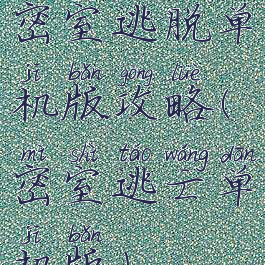 密室逃脱单
jī bǎn gōng lüè
机版攻略(
mì shì táo wáng dān
密室逃亡单
jī bǎn
机版)